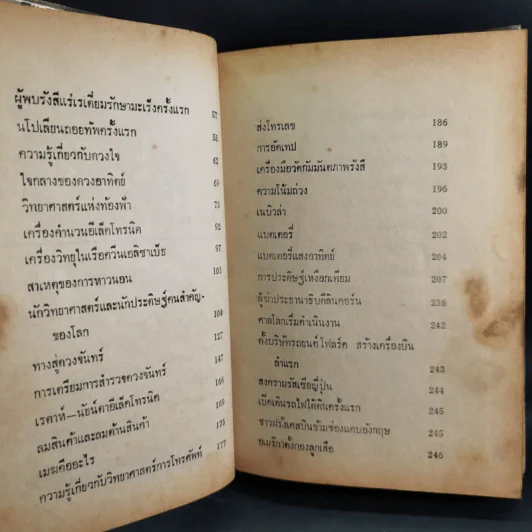 ผู้พบรังสีแร่เรเดี่ยมรักษามะเร็งครั้งแรก 57
นโปเลียนถอยทัพครั้งแรก 58
ความรู้เกี่ยวกับดวงใจ 62
ใจกลางของดวงอาทิตย์ 69
วิทยาศาสตร์แห่งท้องฟ้า 73
เครื่องคำนวนอีเล็คโทรนิค 92
เครื่องวิทยุในเรือควีนเอลิซาเบ็ธ 97
สาเหตุของการหาวนอน 101
นักวิทยาศาสตร์และนักประดิษฐ์คนสำคัญ-
ของโลก 109
ทางสู่ดวงจันทร์ 127
การเตรียมการสำรวจดวงจันทร์ 147
เรดาห์—นัยน์ตาอีเล็คโทรนิค 166
ลมสินค้าและลมต้านสินค้า 169
เมฆคืออะไร 175
ความรู้เกี่ยวกับวิทยาศาสตร์การโทรศัพท์ 177
ส่งโทรเลข 186
การอัดเทป 189
เครื่องมือวัดกัมมันตภาพรังสี 193
ความโน้มถ่วง 196
เนบิวล่า 200
แบตเตอรี่ 202
แบตเตอรี่แสงอาทิตย์ 204
การประดิษฐ์เหงือกเทียม 207
ผู้ฆ่าประธานาธิบดีลินคอร์น 236
ศาลโลกเริ่มดำเนินงาน 242
ตั้งบริษัทรถยนต์โฟลร์ด สร้างเครื่องบิน
ลำแรก 243
สงครามรัสเซียญี่ปุ่น 244
เบิดเดินรถไฟใต้ดินครั้งแรก 245
ชาวฝรั่งเศสบินข้ามช่องแคบอังกฤษ 245
อเมริกาตั้งกองลูกเสือ 246